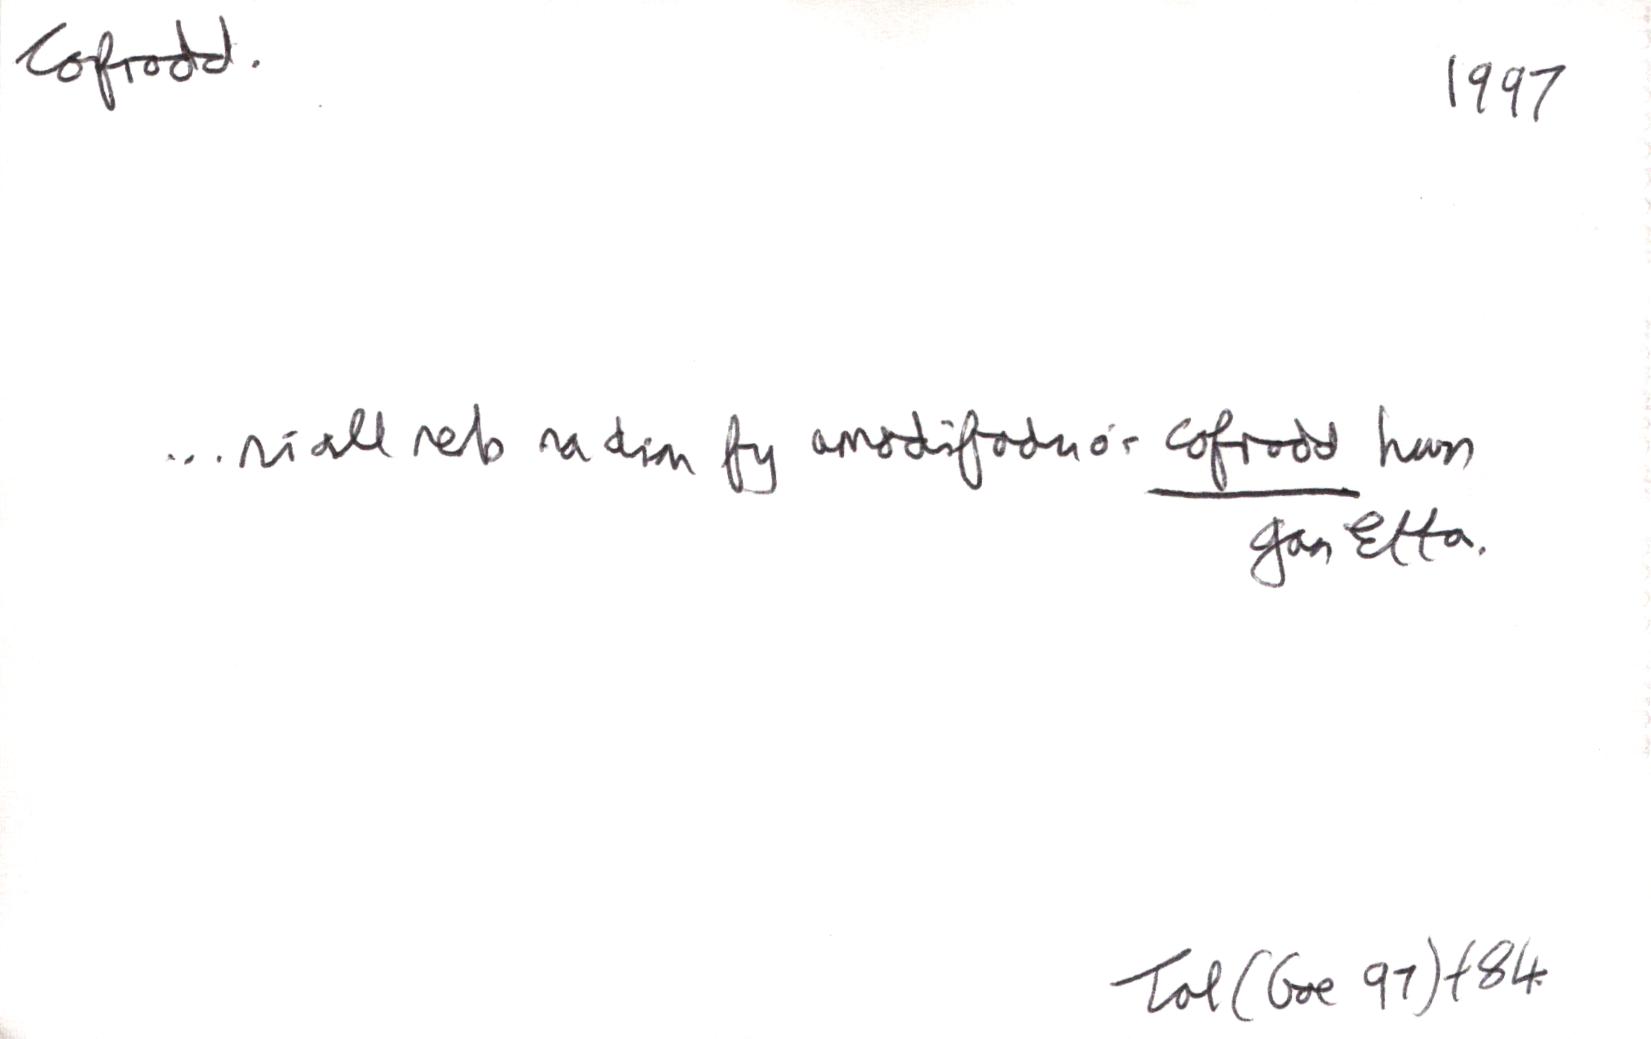 Cofrodd.
1997
...ni all neb na dim fy amddifadu o'r cofrodd hwn
gan Etta.
Tal (Gae 97) t84.